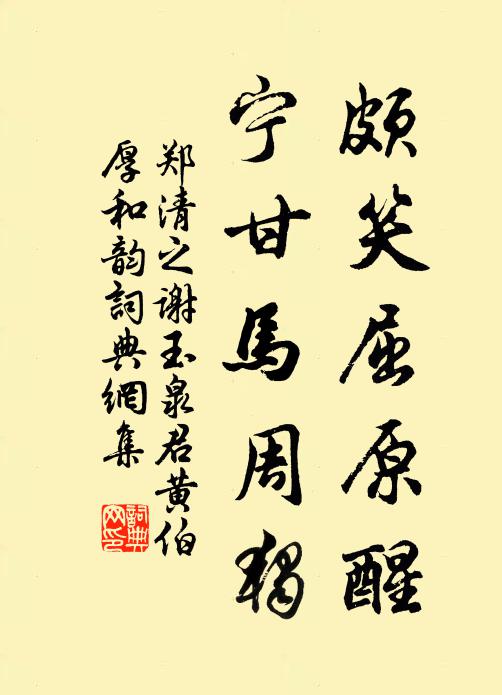 颇笑屈原醒
宁甘馬周獨
郑清之谢玉泉君黄伯
厚和韵詞典網集
詞典
网印